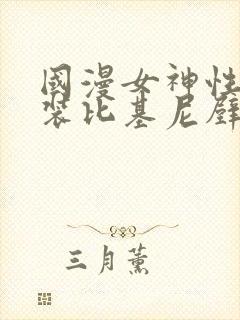 國漫女神性
裝比基尼壁
三月薰